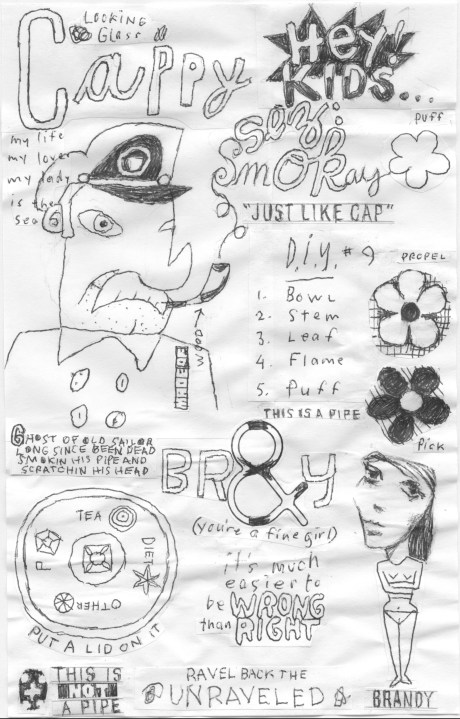 LOOKING
GLASS
Cappy
Hey!
KIDS...
my life
my lover
my lady
is the
sea
SMOKay
"JUST LIKE CAP"
PUFF
D.i.y. # 9
1. Bowl
2. Stem
3. Leaf
4. Flame
5. Puff
THIS IS A PIPE
PROPEL
Pick
WOOD
GHOST OF OLD SAILOR
LONG SINCE BEEN DEAD
SMOKIN HIS PIPE AND
SCRATCHIN HIS HEAD
BR&Y
(you're a fine girl)
it's much
easier to
be WRONG
than RIGHT
TEA
DIE
OTHER
P
PUT A LID ON IT
THIS IS
NOT
A PIPE
RAVEL BACK THE
UNRAVELED
BRANDY